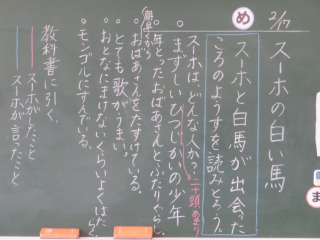 2/17
スーホの白い馬
め
スーホと白馬が出会った
ころのようすを読みとろう。
スーホは、どんな人か？
二十頭あまり
・まずしいひつじかいの少年
・年とったおばあさんとふたりぐらし。
朝早くから
・おばあさんをたすけている。
・とても歌がうまい。
・おとなにまけないくらいよくはたらく。
・モンゴルにすんでいる。
教科書に引く。
スーホがしたこと
スーホが言ったこと
ま